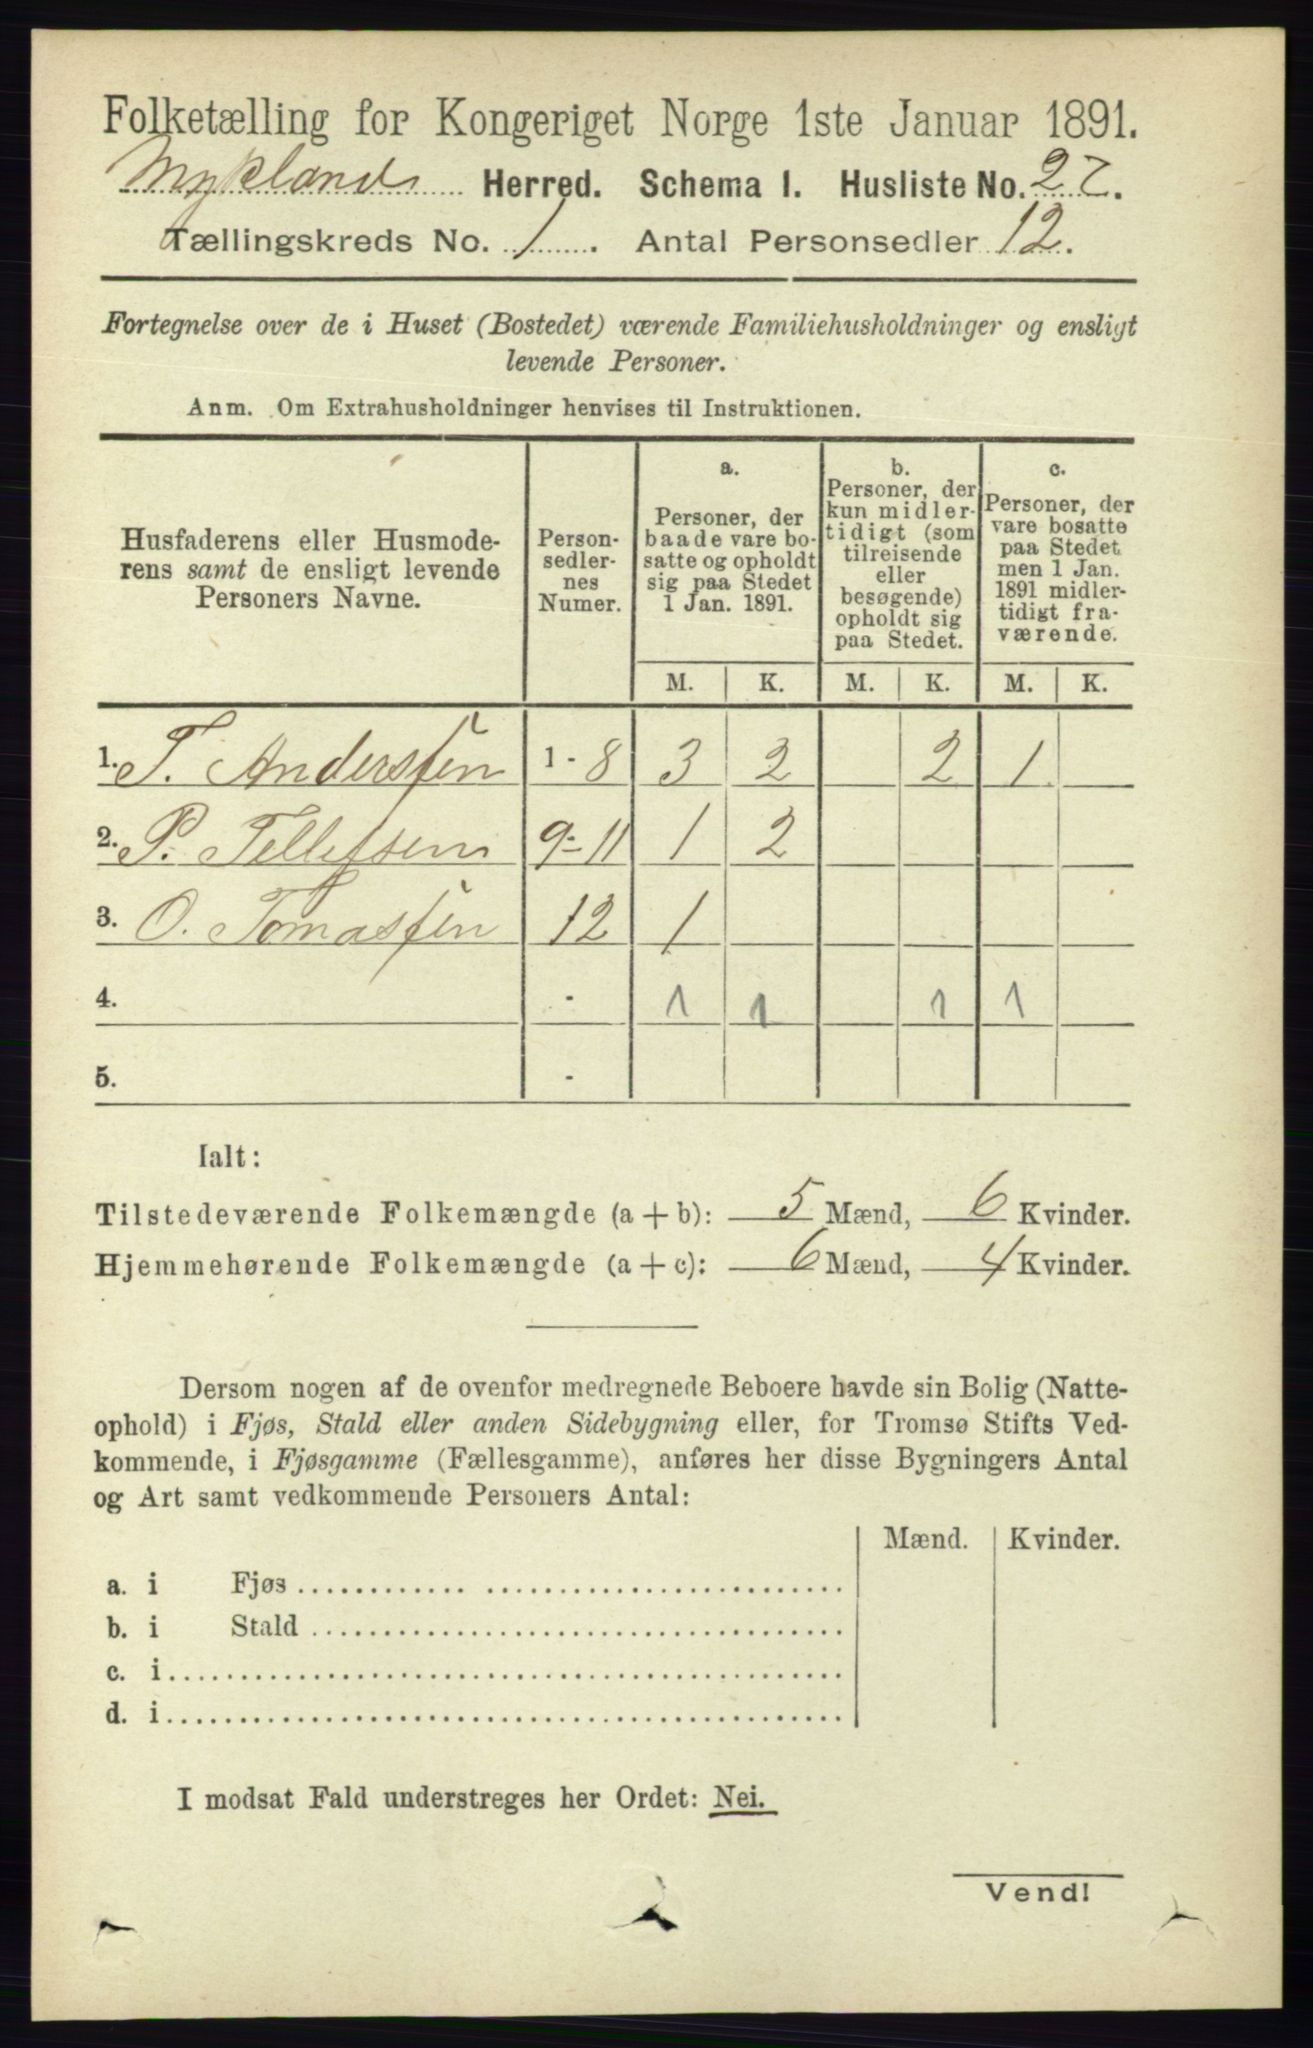 Folketælling for Kongeriget Norge 1ste Januar 1891.
Myklands Herred. Schema I. Husliste No. 27.
Tællingskreds No. 1. Antal Personsedler 12.
Fortegnelse over de i Huset (Bostedet) værende Familiehusholdninger og ensligt
levende Personer.
Anm. Om Extrahusholdninger henvises til Instruktionen.
Husfaderens eller Husmode-
rens samt de ensligt levende
Personers Navne.
Person-
sedler-
nes
Numer.
a.
Personer, der
baade vare bo-
satte og opholdt
sig paa Stedet
1 Jan. 1891.
b.
Personer, der
kun midler-
tidigt (som
tilreisende
eller
besøgende)
opholdt sig
paa Stedet.
c.
Personer, der
vare bosatte
paa Stedet
men 1 Jan.
1891 midler-
tidigt fra-
værende.
M. K. M. K. M. K.
1. T. Andersen 1 - 8 3 2 2 1
2. P. Tellefsen 9 - 11 1 2
3. O. Tomassen 12 1
4. - 1 1 1 1
5. -
Ialt:
Tilstedeværende Folkemængde (a + b): 5 Mænd, 6 Kvinder.
Hjemmehørende Folkemængde (a + c): 6 Mænd, 4 Kvinder.
Dersom nogen af de ovenfor medregnede Beboere havde sin Bolig (Natte-
ophold) i Fjøs, Stald eller anden Sidebygning eller, for Tromsø Stifts Ved-
kommende, i Fjøsgamme (Fællesgamme), anføres her disse Bygningers Antal
og Art samt vedkommende Personers Antal:
Mænd. Kvinder.
a. i Fjøs
b. i Stald
c. i
d. i
I modsat Fald understreges her Ordet: Nei.
Vend!